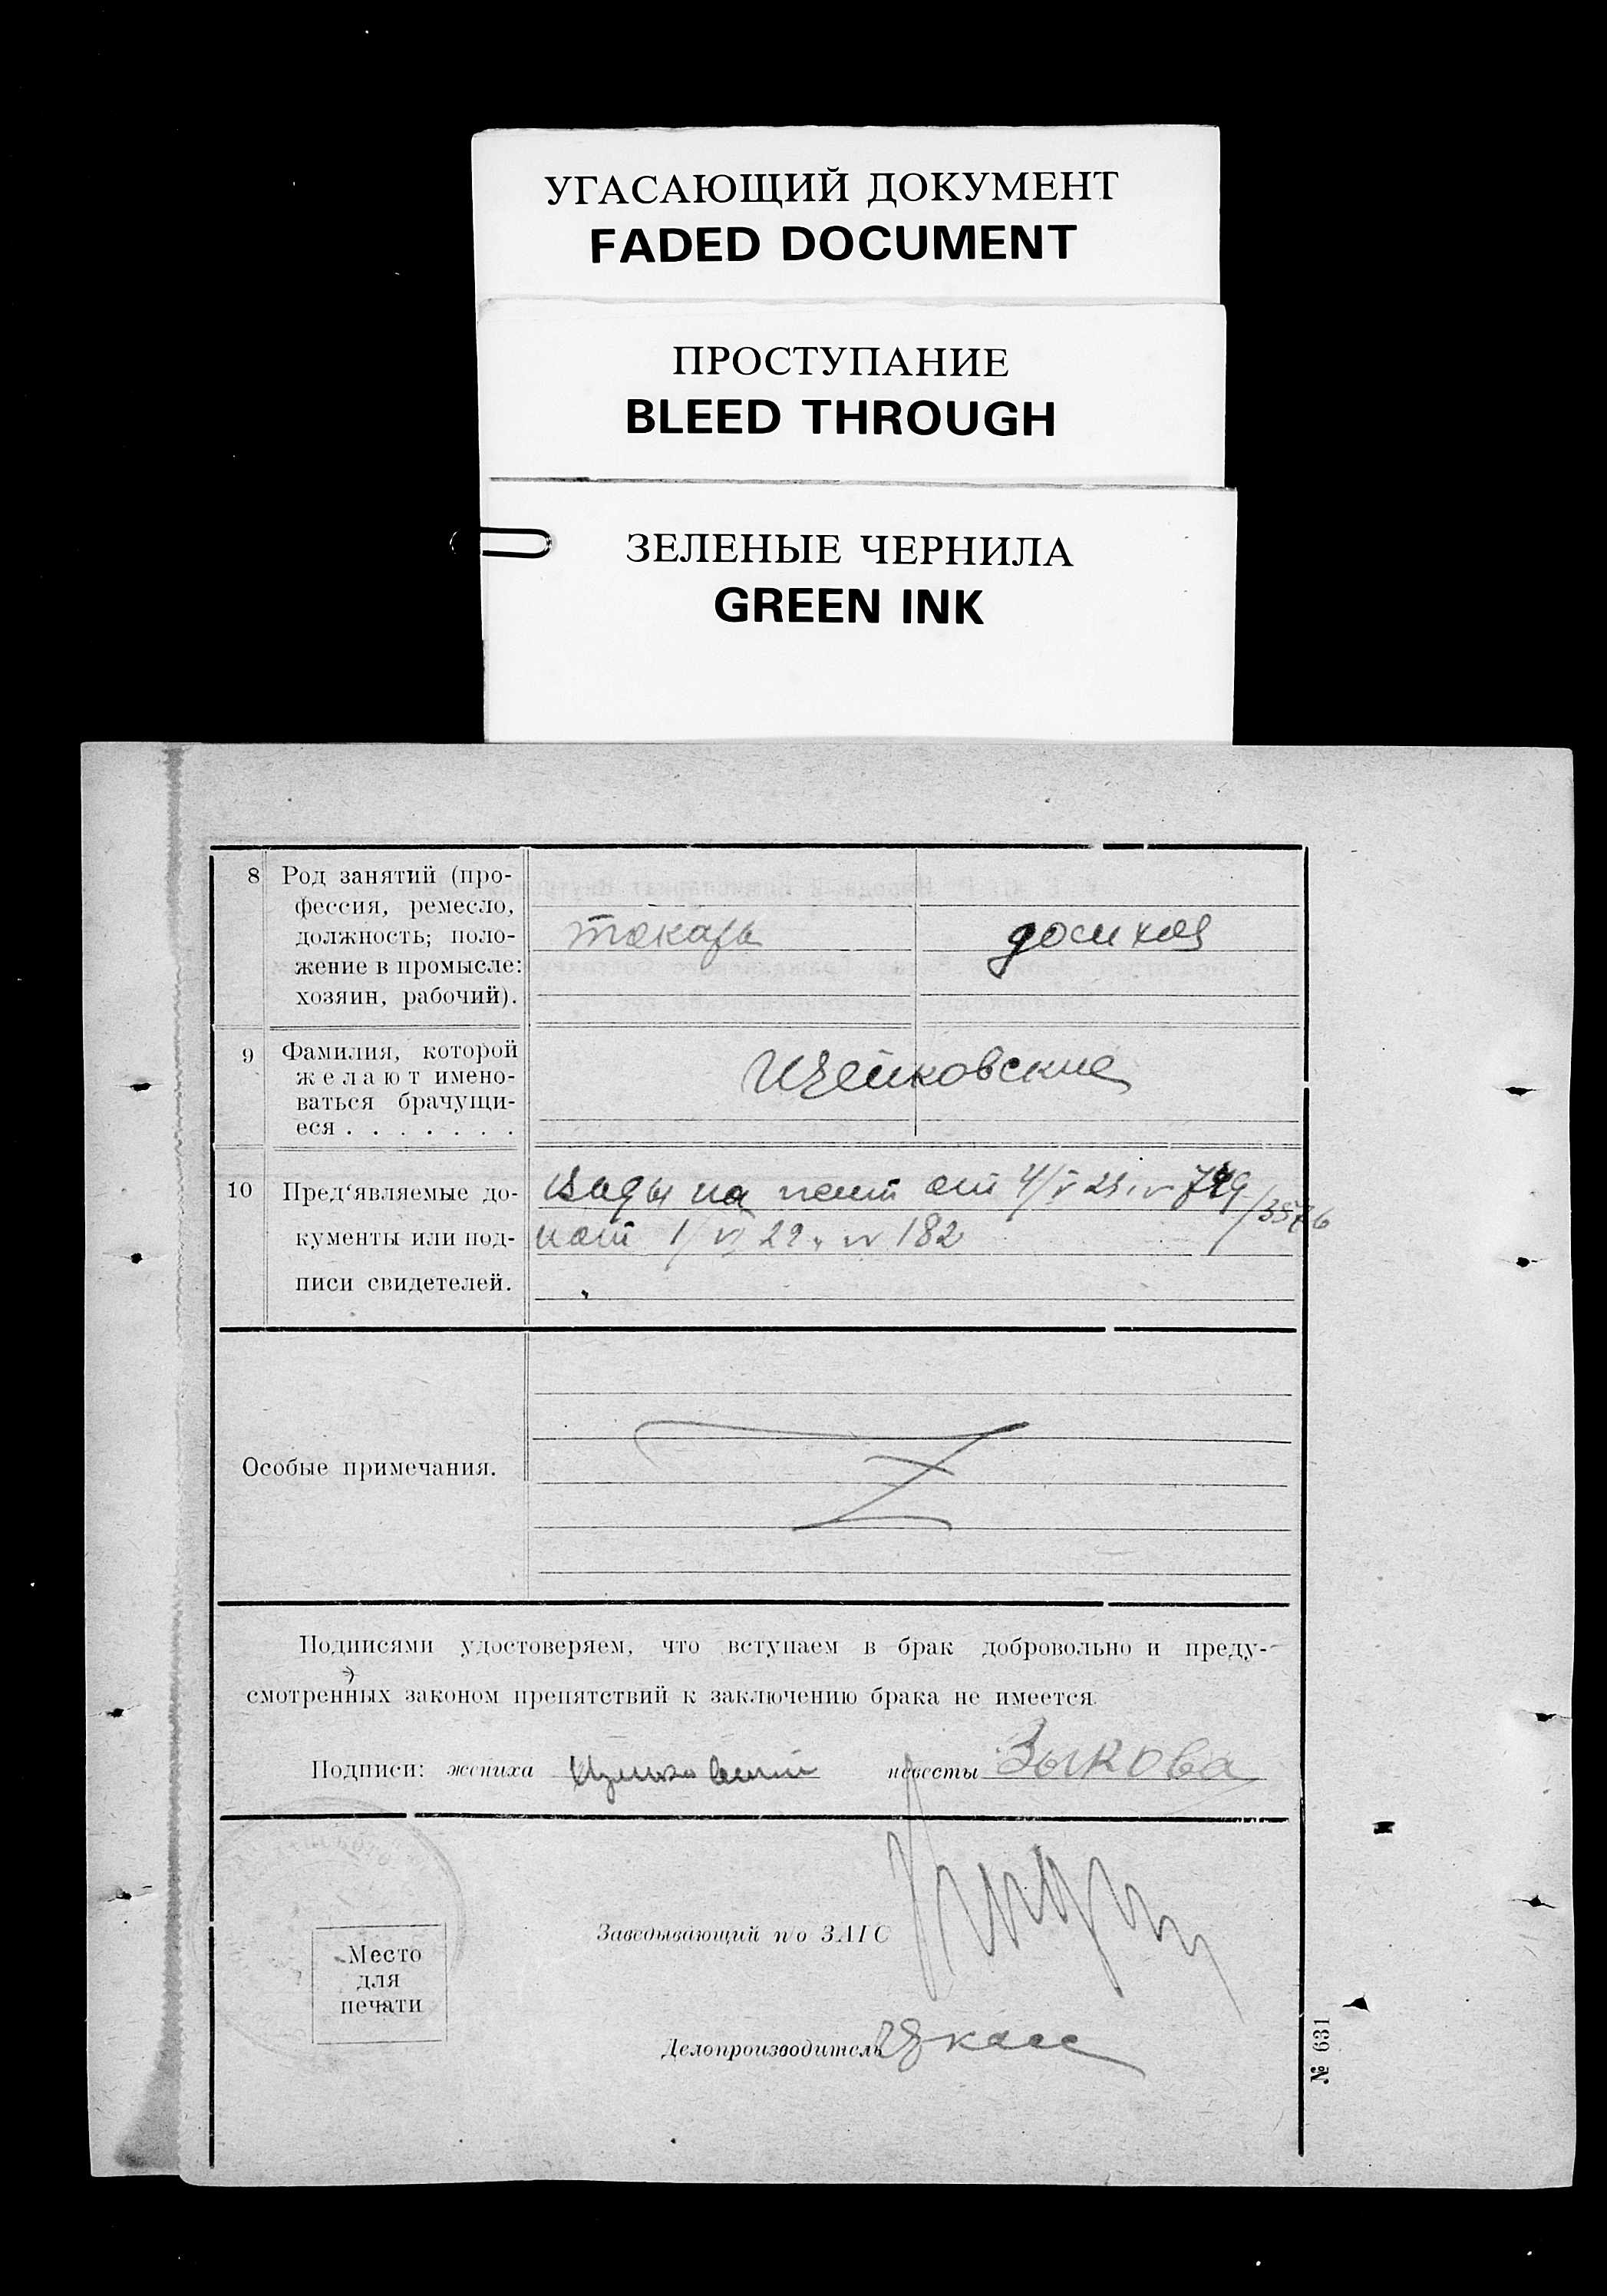 УГАСАЮЩИЙ ДОКУМЕНТ
FADED DOCUMENT
ПРОСТУПАНИЕ
BLEED THROUGH
ЗЕЛЕНЫЕ ЧЕРНИЛА
GREEN INK
8 Род занятий (про-
фессия, ремесло,
должность; поло-
жение в промысле:
хозяин, рабочий).
токарь
9 Фамилия, которой
желают имено-
ваться брачущи-
еся . . . . . . .
10 Пред‘являемые до-
кументы или под-
писи свидетелей.
182
Особые примечания.
Подписями удостоверяем, что вступаем в брак добровольно и преду-
смотренных законом препятствий к заключению брака не имеется
Подписи: жениха невесты Зыкова
Заведывающий п/о ЗАГС
Место
для
печати
Делопроизводитель
№ 631